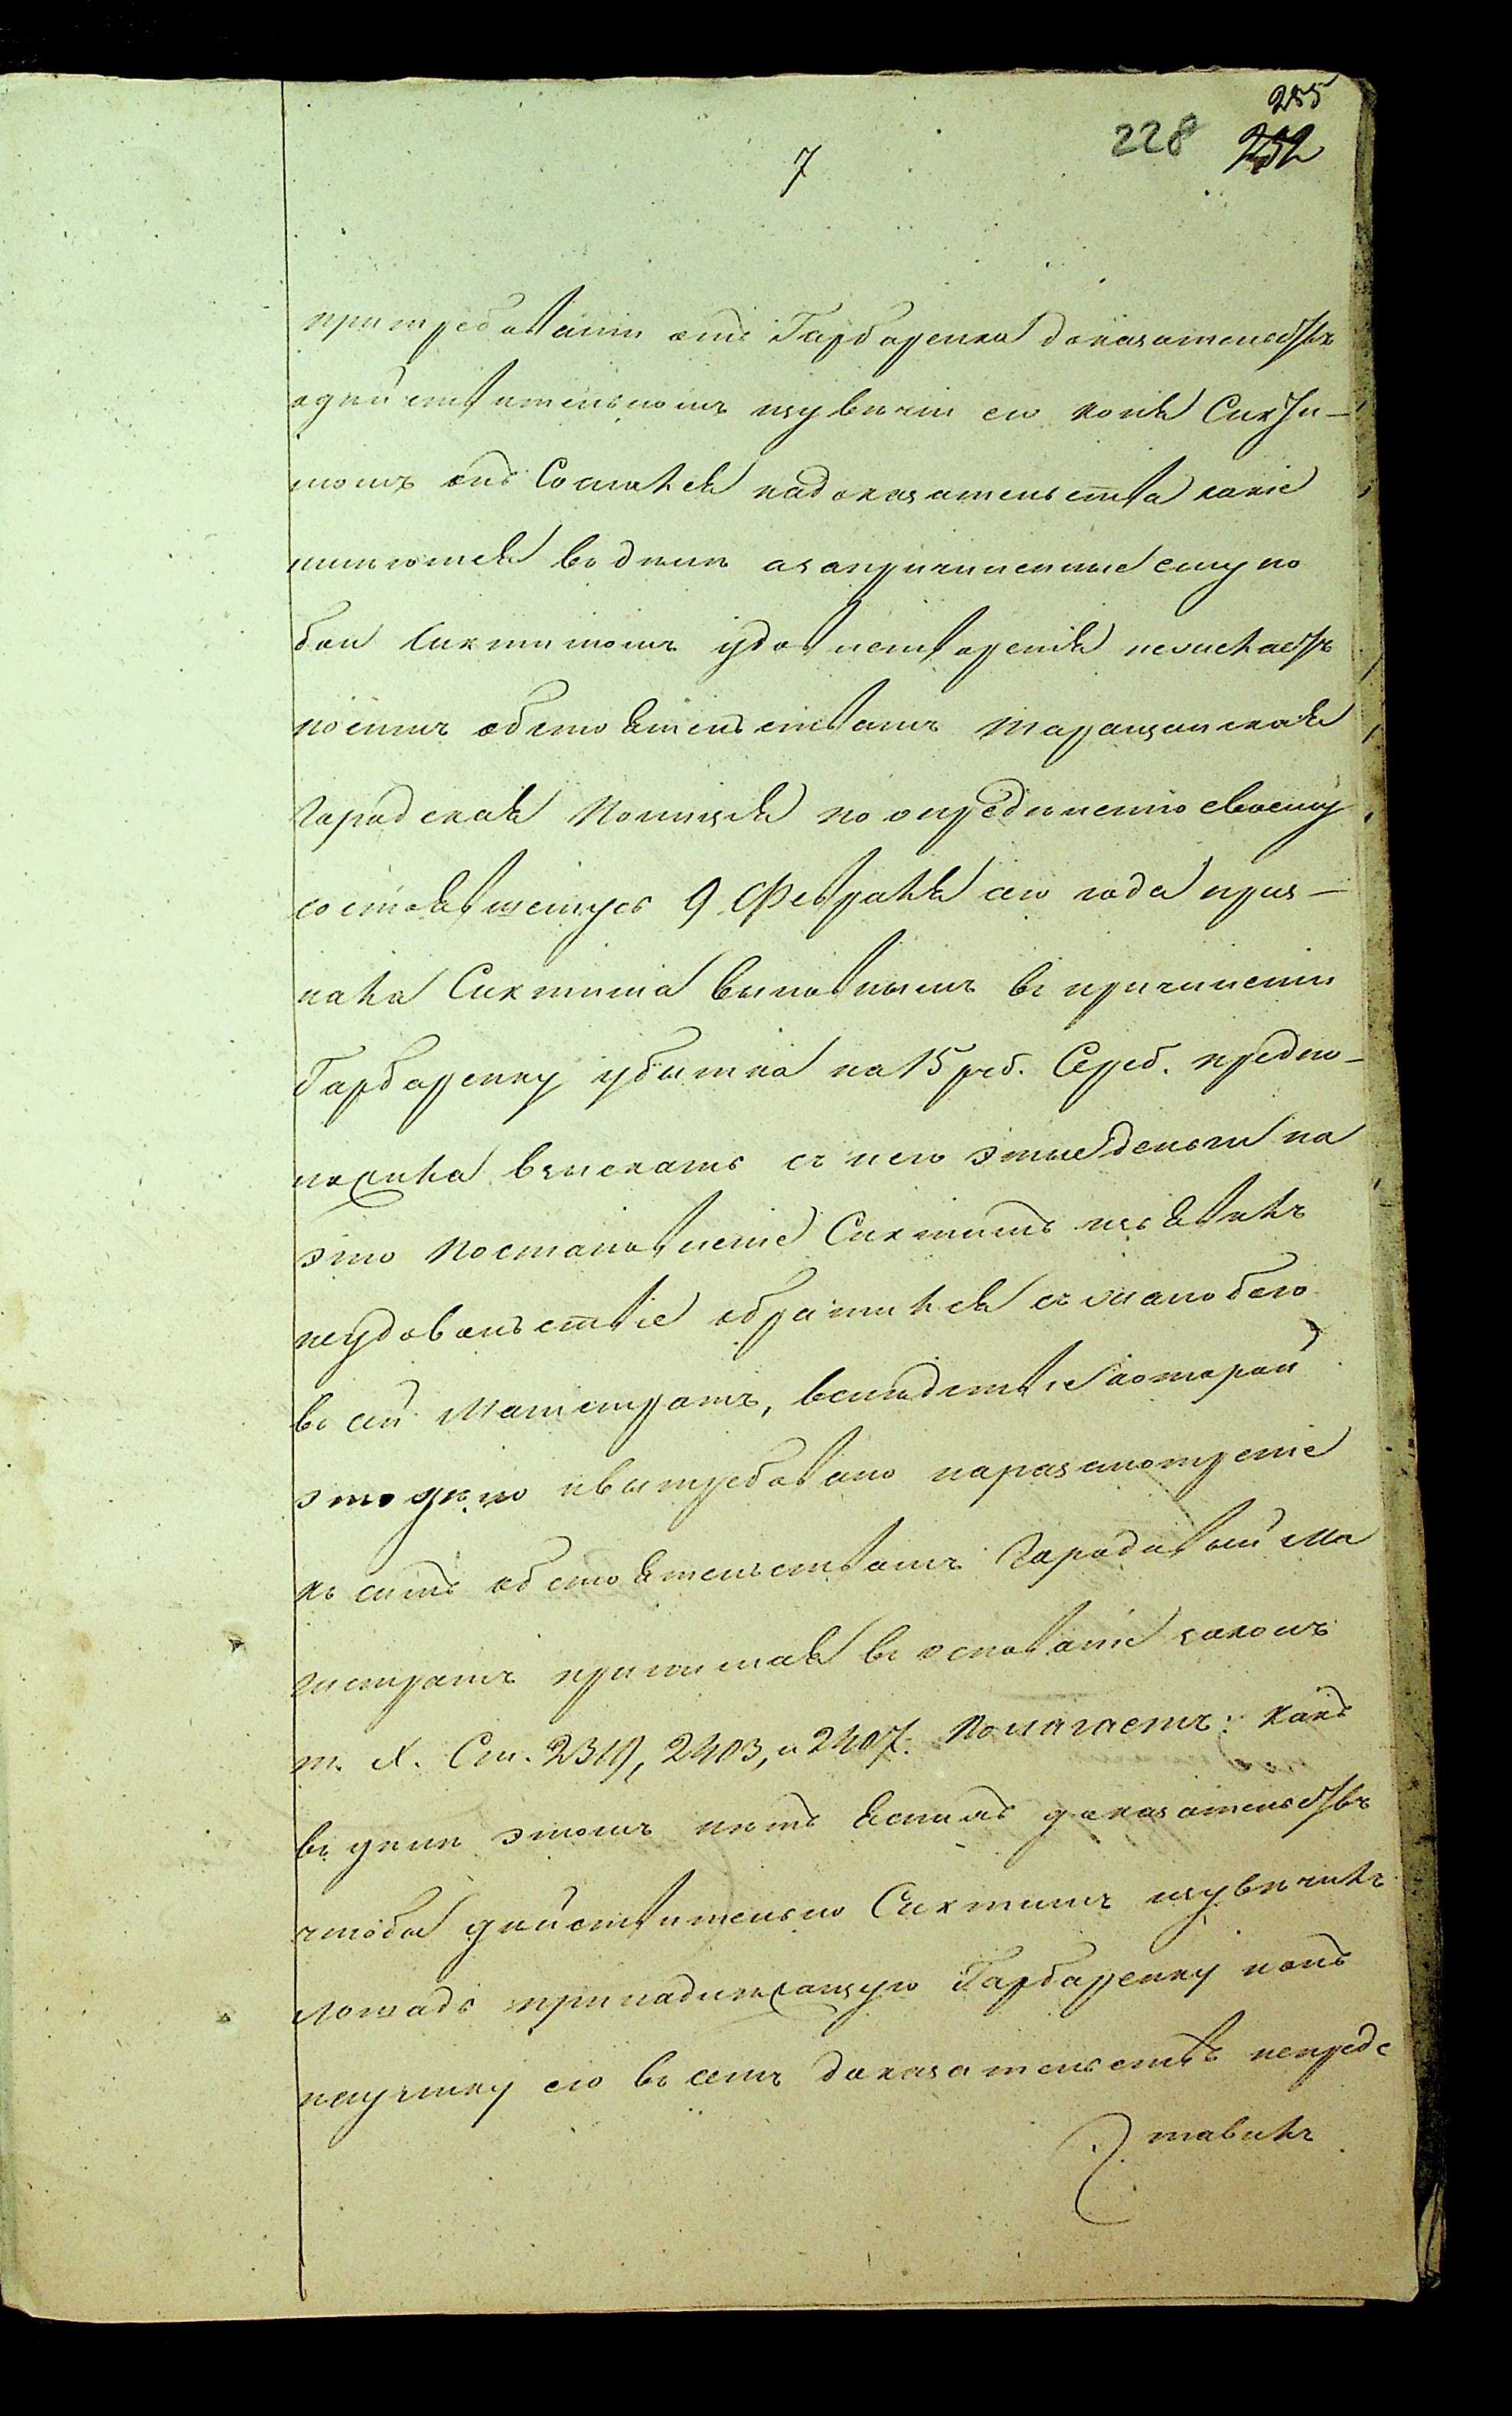 255
228 252
7
при требованіи отъ Гарбаренка доказательствъ
одѣйствительномъ изувѣчіи его коня Сикти-
томъ онъ Сослался надоказательства какіе
имѣются въ дѣлѣ азапричиненные ему по
бои Сиктитомъ удовлетворенія неискаетъ
посимъ обстоятельствамъ Таращанская
Городская Полиція по опредѣленію своему
состоявшемуся 9 Февраля сего года приз-
нала Сиктита виновнымъ въ причиненіи
Гарбаренку убытка на 15 руб. Сереб. предпо-
ложила взыскать съ него этые деньги на
это постановленіе Сиктитъ изъявилъ
неудовольствіе обратился съ жалобою
въ сей Магистратъ, вслѣдствіе которой
это дѣло ивытребовано наразсмотреніе
по симъ обстоятельствамъ Городовый Ма
гистратъ принимая въ основаніе законъ
т. X. Ст. 2319, 2403, и 2407. Полагаетъ: какъ
въ дѣлѣ этомъ нѣтъ ясныхъ доказательствъ
чтобы дѣйствительно Сиктитъ изувѣчилъ
лошадь принадлежащую Гарбаренку ионъ
научинку его въ семъ доказательствъ непредс
тавилъ